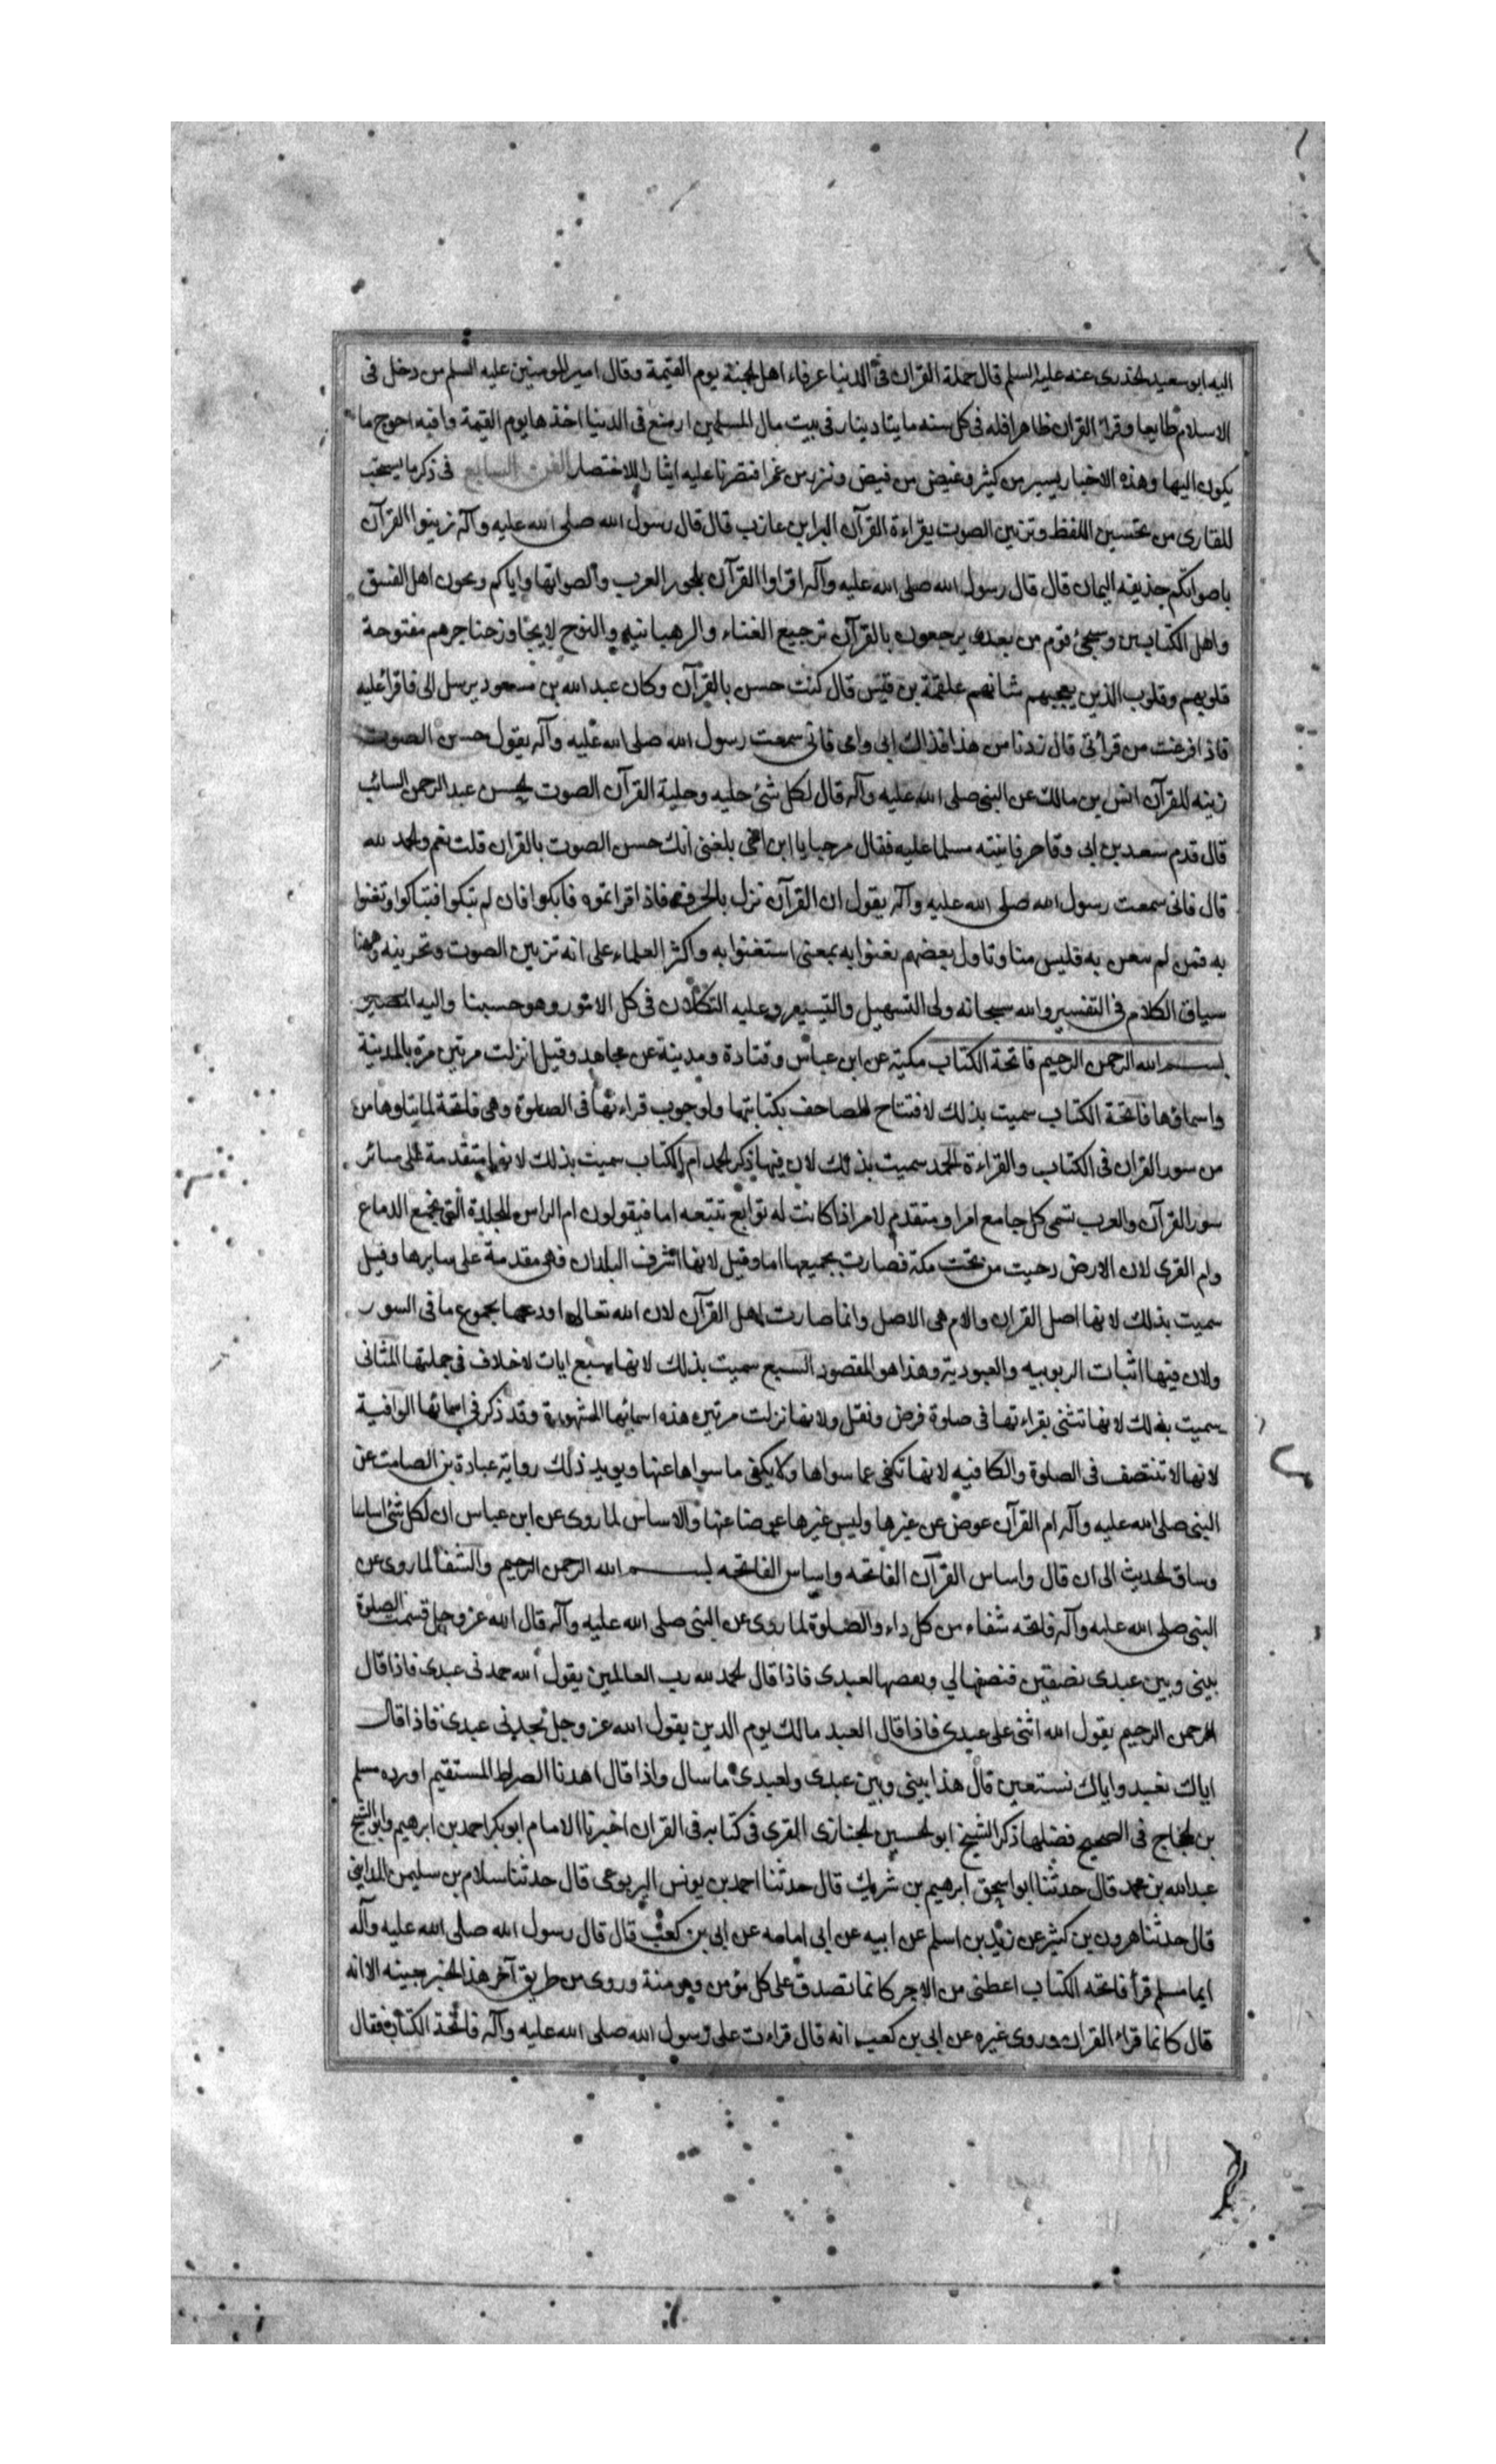 اليه ابو سعيد الخدرى عنه عليه السلم قال حملة القران فى الدنيا عرفاء اهل الجنة يوم القيمة وقال امير المومنين عليه السلم من دخل فى
الاسلام طايعا وقرا القران ظاهرا فله فى كل سنه مايتا دينار فى بيت مال المسلمين ان منع فى الدنيا اخذها يوم القيمة وافيه احوج ما
يكون اليها وهذه الاخبار يسير من كثير وغيض من فيض ونزر من غمر اقتصرنا عليه ايثارا للاختصار الفن السابع فى ذكر ما يستحب
للقارى من تحسين اللفظ وتزيين الصوت بقراءة القرآن البرا بن عازب قال قال رسول الله صلى الله عليه وآله زينوا القرآن
باصواتكم حذيفه اليمان قال قال رسول الله صلى الله عليه وآله اقراوا القرآن بلحون العرب واصواتها واياكم ولحون اهل الفسق
واهل الكتابين وسيجئ قوم من بعدى يرجعون بالقرآن ترجيع الغناء والرهبانية والنوح لا يجاوز حناجرهم مفتوحة
قلوبهم وقلوب الذين يعجبهم شانهم علقمة بن قيس قال كنت حسن بالقرآن وكان عبد الله بن مسعود يرسل الى فاقرا عليه
فاذا فرغت من قرأتى قال زدنا من هذا فداك ابى وامى فانى سمعت رسول الله صلى الله عليه وآله يقول حسن الصوت
زينه للقرآن انس بن مالك عن النبى صلى الله عليه وآله قال لكل شئ حليه وحلية القرآن الصوت الحسن عبد الرحمن السائب
قال قدم سعد بن ابى وقاص فاتيته مسلما عليه فقال مرحبا يا ابن اخى بلغنى انك حسن الصوت بالقران قلت نعم والحمد لله
قال فانى سمعت رسول الله صلى الله عليه وآله يقول ان القرآن نزل بالحزن فاذا قراتموه فابكوا فان لم تبكوا فتباكوا وتغنوا
به فمن لم يتغن به فليس منا وتاول بعضهم تغنوا به بمعنى استغنوا به واكثر العلماء على انه تزيين الصوت وتحزينه وههنا
سياق الكلام فى التفسير والله سبحانه ولى التسهيل والتيسير وعليه التكلان فى كل الامور وهو حسبنا واليه المصير
بسم الله الرحمن الرحيم فاتحة الكتاب مكية عن ابن عباس وقتادة ومدينة عن مجاهد وقيل انزلت مرتين مرة بالمدينة
واسماؤها فاتحة الكتاب سميت بذلك لافتتاح المصاحف بكتابتها ولوجوب قراءتها فى الصلوة وهى فاتحة لما يتلوها من
من سور القران فى الكتاب والقراءة الحمد سميت بذلك لان فيها ذكر الحمد ام الكتاب سميت بذلك لانها متقدمة على سائر
سور القرآن والعرب تسمى كل جامع امر او متقدم لامر اذا كانت له توابع تتبعه اما فيقولون ام الراس للجلدة التى تجمع الدماغ
وام القرى لان الارض دحيت من تحت مكة فصارت لجميعها اما وقيل لانها اشرف البلدان فهى مقدمة على سايرها وقيل
سميت بذلك لانها اصل القران والام هى الاصل وانما صارت اصل القرآن لان الله تعالى اودعها مجموع ما فى السور
ولان فيها اثبات الربوبيه والعبودية وهذا هو المقصود السبع سميت بذلك لانها سبع ايات لا خلاف فى جملتها المثانى
سميت بذلك لانها تثنى بقراءتها فى صلوة فرض ونفل ولانها نزلت مرتين هذه اسمائها المشهورة وقد ذكر فى اسمائها الوافية
لانها لا تنتصف فى الصلوة والكافيه لانها تكفى عما سواها ولا يكفى ما سواها عنها ويويد ذلك رواية عبادة بن الصامت عن
النبى صلى الله عليه وآله ام القرآن عوض عن غيرها وليس غيرها عوضا عنها والاساس لما روى عن ابن عباس ان لكل شئ اساسا
وساق الحديث الى ان قال واساس القرآن الفاتحه واساس الفاتحه بسم الله الرحمن الرحيم والشفأ لما روى عن
النبى صلى الله عليه وآله فاتحه شفاء من كل داء والصلوة لما روى عن النبى صلى الله عليه وآله قال الله عز وجل قسمت الصلوة
بينى وبين عبدى نصفين فنصفها لي ونصفها لعبدى فاذا قال الحمد لله رب العالمين يقول الله حمدنى عبدى فاذا قال
الرحمن الرحيم يقول الله اثنى على عبدى فاذا قال العبد مالك يوم الدين يقول الله عز وجل مجدنى عبدى فاذا قال
اياك نعبد واياك نستعين قال هذا بينى وبين عبدى ولعبدى ما سال واذا قال اهدنا الصراط المستقيم اورده مسلم
بن الحجاج فى الصحيح فضلها ذكر الشيخ ابو الحسين الخبازى المقرى فى كتابه فى القران اخبرنا الامام ابو بكر احمد بن ابرهيم وابو الشيخ
عبد الله بن محمد قال حدثنا ابو اسحق ابرهيم بن شريك قال حدثنا احمد بن يونس اليربوعى قال حدثنا سلام بن سليمن المدايني
قال حدثنا هرون بن كثير عن زيد بن اسلم عن ابيه عن ابى امامه عن ابى بن كعب قال قال رسول الله صلى الله عليه وآله
ايما مسلم قرأ فاتحه الكتاب اعطى من الاجر كانما تصدق على كل مؤمن ومؤمنة وروى من طريق آخر هذا الخبر بعينه الا انه
قال كانما قراء القران وروى غيره عن ابى بن كعب انه قال قراءت على رسول الله صلى الله عليه وآله فاتحة الكتاب فقال